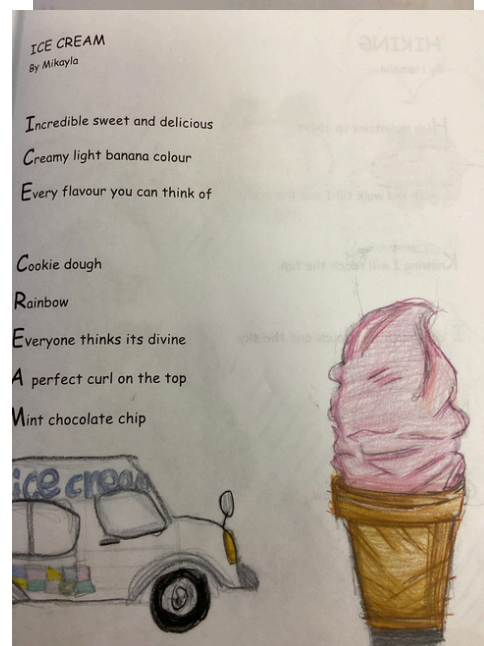 ICE CREAM
By Mikayla
Incredible sweet and delicious
Creamy light banana colour
Every flavour you can think of
Cookie dough
Rainbow
Everyone thinks its divine
A perfect curl on the top
Mint chocolate chip
ice cream
HIKING
Knowing I will reach the top